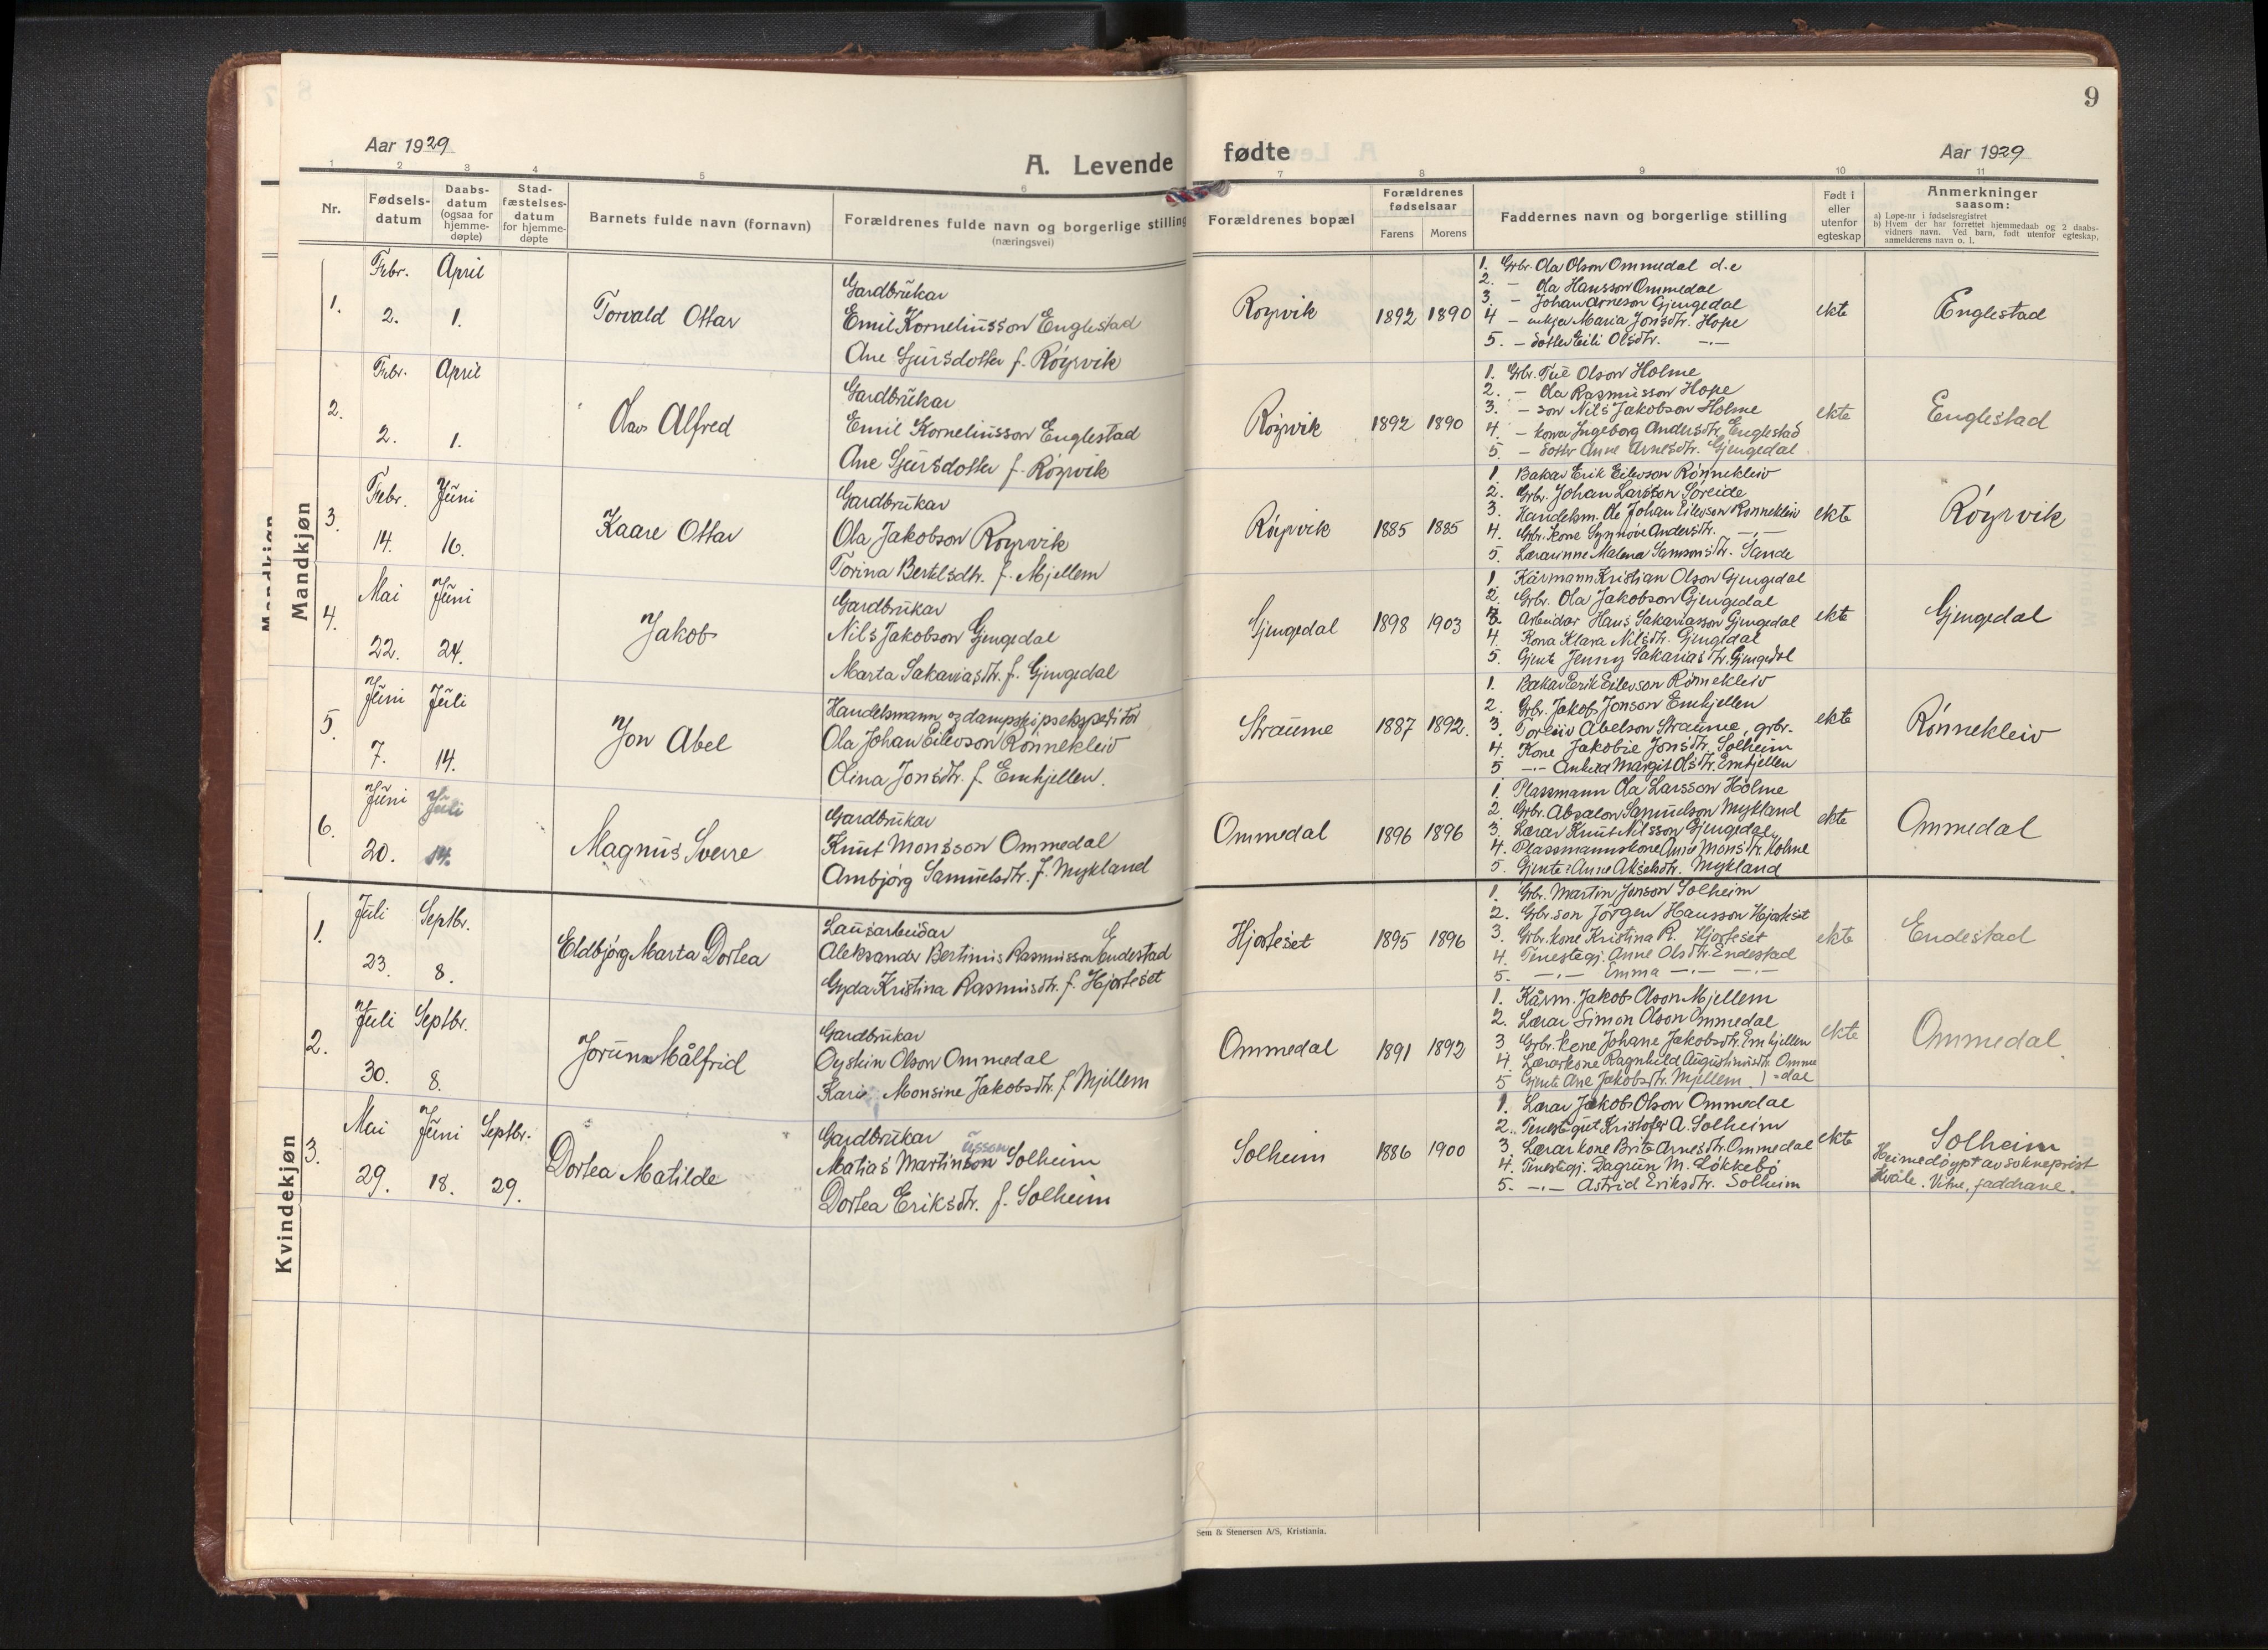 9
Aar 1929
A. Levende
fødte
Aar 1929
1 2 3 4 5 6 7 8 9 10 11
Nr.
Fødsels-
datum
Daabs-
datum
(ogsaa for
hjemme-
døpte)
Stad-
fæstelses-
datum
for hjemme-
døpte
Barnets fulde navn (fornavn)
Forældrenes fulde navn og borgerlige stilling
(næringsvei)
Forældrenes bopæl
Forældrenes
fødselsaar
Farens Morens
Faddernes navn og borgerlige stilling
Født i
eller
utenfor
egteskap
Anmerkninger
saasom:
a) Løpe-nr i fødselsregistret
b) Hvem der har forrettet hjemmedaab og 2 daabs-
vidners navn. Ved barn, født utenfor egteskap,
anmelderens navn o. l.
Mandkjøn
Mandkjøn
1.
Febr. April
2. 1.
Torvald Ottar
Gardbrukar
Emil Korneliusson Englestad
Ane Sjursdotter f. Røyrvik
Røyrvik
1892 1890
1. Grbr. Ola Olson Ommedal d.e
2. — Ola Hansson Ommedal
3. — Johan Arneson Gjengedal
4 — enkja Maria Jonsdtr. Hope
5. — dotter Eili Olsdtr. —.—
ekte
Englestad
2.
Febr. April
2. 1.
Olav Alfred
Gardbrukar
Emil Korneliusson Englestad
Ane Sjursdotter f. Røyrvik
Røyrvik
1892 1890
1. Grbr. Tue Olson Holme
2. — Ola Rasmusson Hope
3. — son Nils Jakobson Holme
4. — kona Ingeborg Andersdtr. Englestad
5. — dotter Anne Arnesdtr. Gjengedal
ekte
Englestad
3.
Febr. Juni
14. 16.
Kaare Ottar
Gardbrukar
Ola Jakobson Røyrvik
Torina Bertelsdtr. f. Mjellem
Røyrvik
1885 1885
1. Bakar Erik Eilevson Rønnekleiv
2. Grbr. Johan Larsson Søreide
3. Handelsm. Ole Johan Eilevson Rønnekleiv
4. Grbr. kone Synnøve Andersdtr. —.—
5. Lærarinne Malena Samsonsdtr. Sande
ekte
Røyrvik
4.
Mai Juni
22. 24.
Jakob
Gardbrukar
Nils Jakobson Gjengedal
Marta Sakariasdtr. f. Gjengedal
Gjengedal
1898 1903
1. Kårmann Kristian Olson Gjengedal
2. Grbr. Ola Jakobson Gjengedal
3. Arbeidar Hans Sakariasson Gjengedal
4. Kona Klara Nilsdtr. Gjengedal
5. Gjente Jenny Sakariasdtr. Gjengedal
ekte
Gjengedal
5.
Juni Juli
7. 14.
Jon Abel
Handelsmann og dampskipsekspeditør
Ola Johan Eilevson Rønnekleiv
Olina Jonsdtr. f. Emhjellen.
Straume
1887 1892.
1. Bakar Erik Eilevson Rønnekleiv
2. Grbr. Jakob Jonson Emhjellen
3. Torleiv Abelson Straume, grbr.
4. Kone Jakobie Jonsdtr. Solheim
5 —.— Margit Olsdtr. Emhjellen
ekte
Rønnekleiv
6.
Juni Juli
20. 14.
Magnus Sverre
Gardbrukar
Knut Monsson Ommedal
Ambjørg Samuelsdtr. f. Mykland
Ommedal
1896 1896
1. Plassmann Ola Larsson Holme
2. Grbr. Absalon Samuelson Mykland
3. Lærar Knut Nilsson Gjengedal
4. Plassmannskone Anne Monsdtr. Holme
5. Gjente: Anne Akselsdtr. Mykland
ekte
Ommedal
Kvindekjøn
1.
Juli Septbr.
23. 8.
Eldbjørg Marta Dortea
Lausarbeidar
Aleksander Bertinius Rasmusson Endestad
Gyda Kristina Rasmusdtr. f. Hjorteset
Hjorteset
1895 1896
1. Grbr. Martin Jonson Solheim
2. Grbr. son Jørgen Hansson Hjorteset
3. Grbr. kone Kristina R. Hjorteset
4. Tenestegj. Anne Olsdtr. Endestad
5. —.— Emma —.— —.—
ekte
Endestad
2.
Juli Septbr.
30. 8.
Jorunn Målfrid
Gardbrukar
Øystein Olson Ommedal
Kari Monsine Jakobsdtr. f. Mjellem
Ommedal
1891 1892
1. Kårm. Jakob Olson Mjellem
2. Lærar Simon Olson Ommedal
3 Grbr. kone Johane Jakobsdtr. Emhjellen
4. Lærarkone Ragnhild Augustinusdtr. Omme
5 Gjente Ane Jakobsdtr. Mjellem. ) =dal
ekte
Ommedal
3.
Mai Juni Septbr.
29. 18. 29.
Dortea Matilde
Gardbrukar
usson
Matias Martinson Solheim
Dortea Eriksdtr. f. Solheim
Solheim
1886 1900
1. Lærar Jakob Olson Ommedal
2. Tenestegut Kristofer A. Solheim
3. Lærarkone Brite Arnesdtr. Ommedal
4. Tenestegj. Dagrun M. Løkkebø
5. —.— Astrid Eriksdtr. Solheim
ekte
Solheim
Heimedøypt av sokneprest
Hvåle. Vitne, faddrane.
Sem & Stenersen A/S, Kristiania.